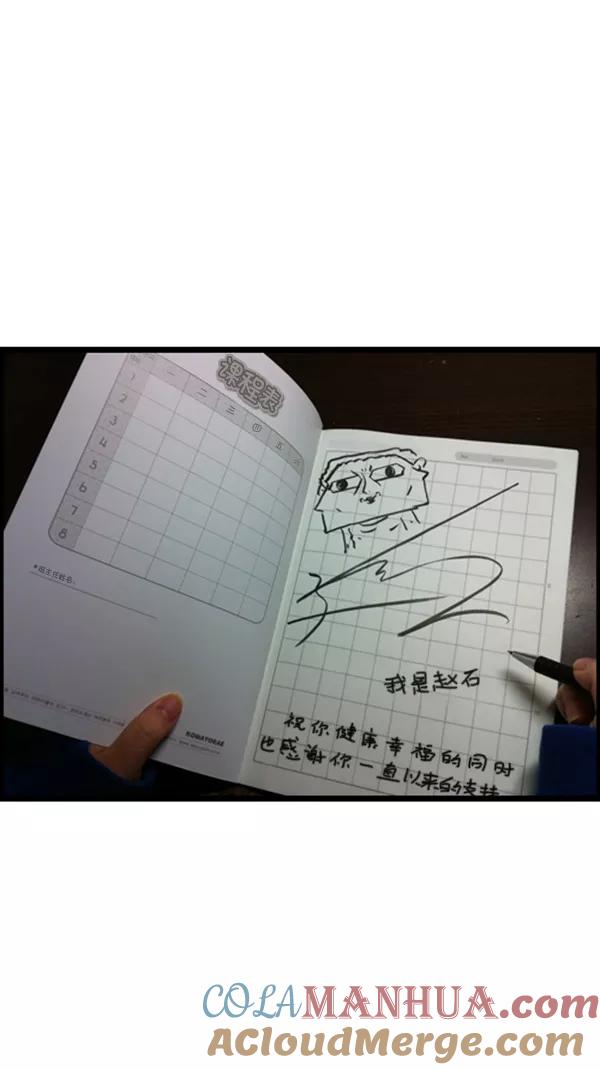 课程表
一 二 三 四 五 六
1
2
3
4
5
6
7
8
*班主任姓名:
KONATURAE
我是赵石
祝你健康幸福的同时
也感谢你一直以来的支持
COLAMANHUA.com
ACloudMerge.com